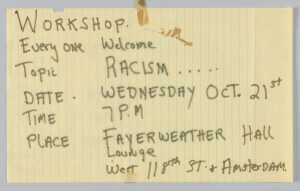 WORKSHOP.
Every one Welcome
Topic RACISM .....
DATE. WEDNESDAY OCT. 21st
TIME 7 P.M
PLACE FAYERWEATHER HALL
Lounge
West 118th ST. & AMSTERDAM.